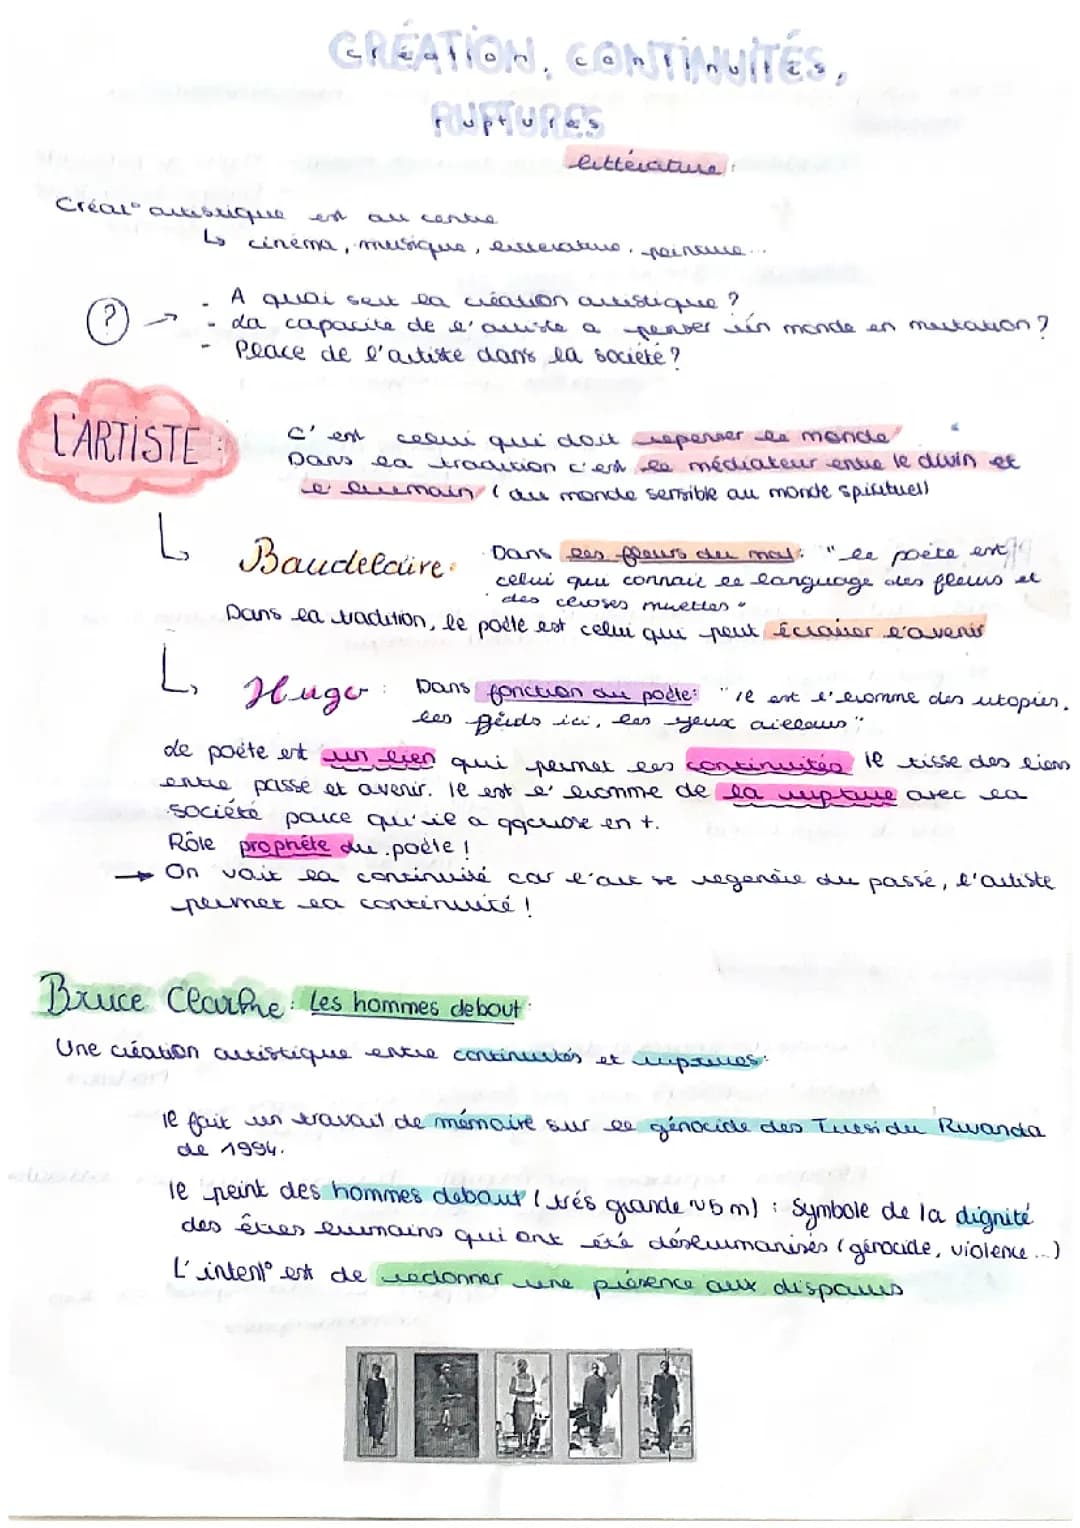 CRÉATION, CONTINUITÉS,
RUPTURES
littérature :
Créat° artistique est au centre
↳ cinéma, musique, litterature, peinture...
? → - A quoi sert la création artistique ?
- La capacité de l'artiste a penser un monde en mutation ?
- Place de l'artiste dans la société ?
L'ARTISTE :
C'est celui qui doit repenser le monde
Dans la tradition c'est le médiateur entre le divin et
l'humain (du monde sensible au monde spirituel)
↳ Baudelaire : Dans les fleurs du mal : "le poète est
celui qui connait le language des fleurs et
des choses muettes"
Dans la tradition, le poète est celui qui peut éclairer l'avenir
↳ Hugo : Dans fonction du poète : "il est l'homme des utopies,
les pieds ici, les yeux ailleurs"
Le poète est un lien qui permet les continuités Il tisse des liens
entre passé et avenir. Il est l'homme de la rupture avec la
société parce qu'il a qqchose en +.
Rôle prophète du poète !
→ On voit la continuité car l'art se regenère du passé, l'artiste
permet la continuité !
Bruce Clarke : Les hommes debout :
Une création artistique entre continuités et ruptures :
Il fait un travail de mémoire sur le génocide des Tutsi du Rwanda
de 1994.
Il peint des hommes debout (très grande ~5 m) : Symbole de la dignité
des êtres humains qui ont été déshumanisés (génocide, violence ...)
L'intent° est de redonner une présence aux disparus